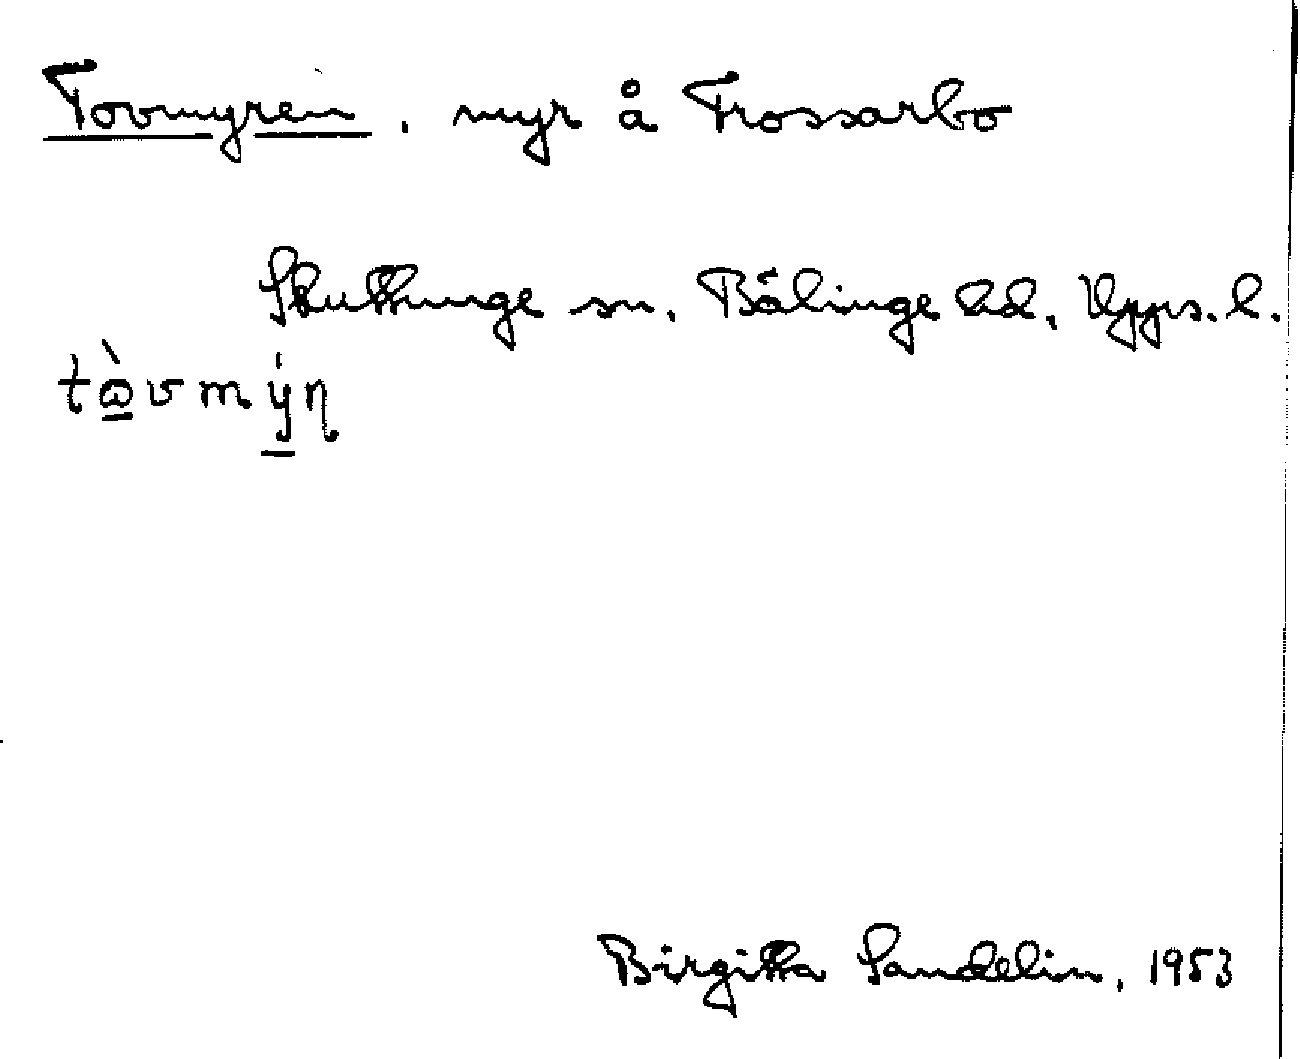 Tovmyren, myr å Trossarbo
Skuttunge sn. Bälinge hd. Upps. l.
tὼvmýn
Birgitta Sandelin, 1953